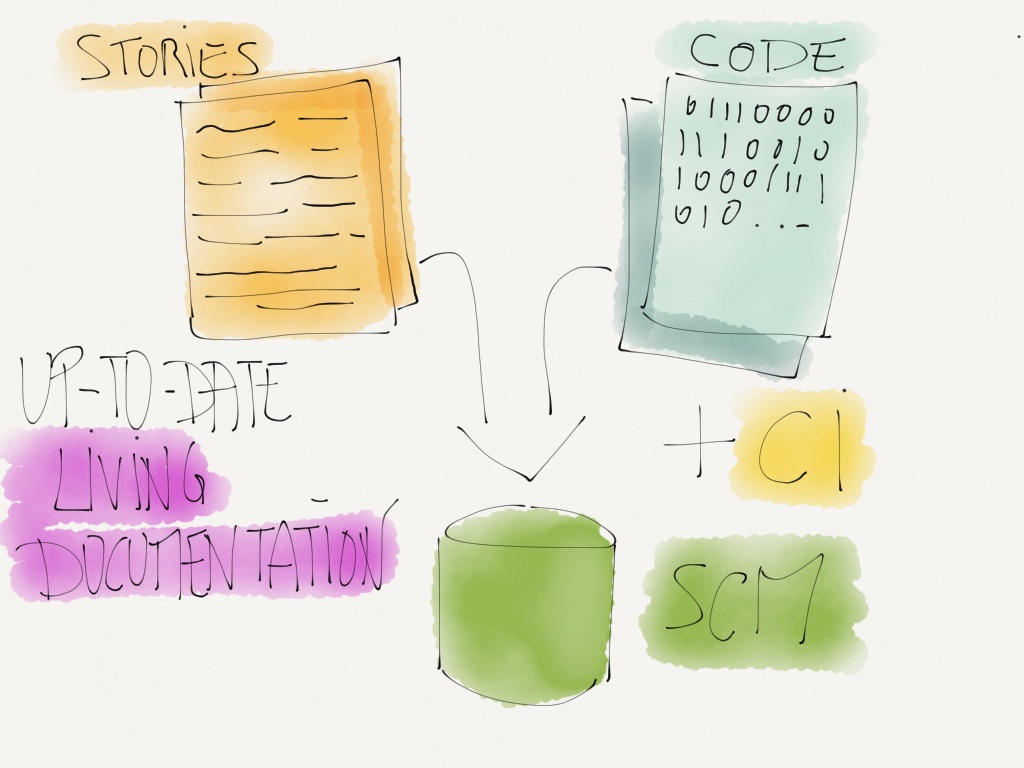 STORIES
CODE
01110000
11100010
1000/111
010...-
UP-TO-DATE
LIVING
DOCUMENTATION
+ CI
SCM